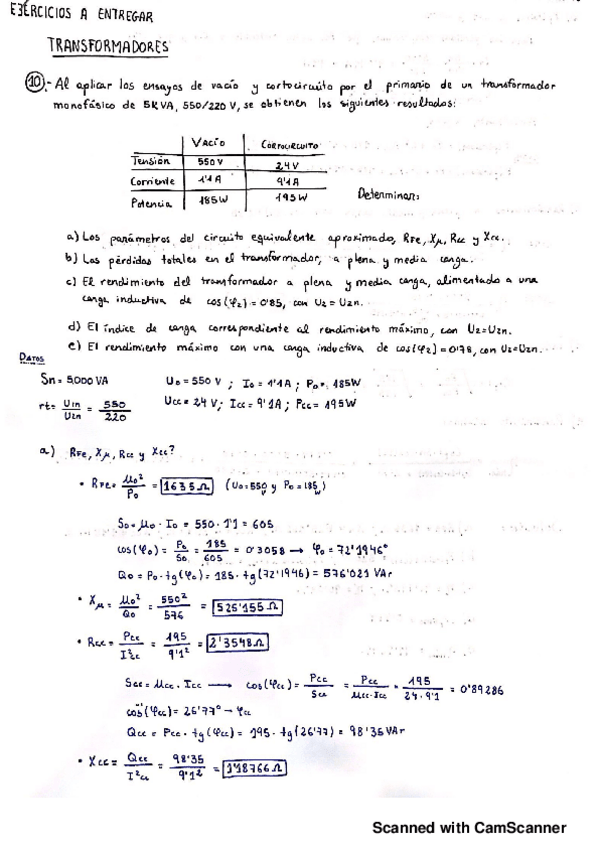 EJERCICIOS A ENTREGAR
TRANSFORMADORES
10.- Al aplicar los ensayos de vacío y cortocircuito por el primario de un transformador
monofásico de 5KVA, 550/220 V, se obtienen los siguientes resultados:
VACÍO CORTOCIRCUITO
Tensión 550V 24V
Corriente 1'1A 9'1A
Potencia 185W 195W
Determinar:
a) Los parámetros del circuito equivalente aproximado, RFe, Xμ, Rcc y Xcc.
b) Las pérdidas totales en el transformador, a plena y media carga.
c) El rendimiento del transformador a plena y media carga, alimentado a una
carga inductiva de cos(φ2) = 0'85, con U2 = U2n.
d) El índice de carga correspondiente al rendimiento máximo, con U2=U2n.
e) El rendimiento máximo con una carga inductiva de cos(φ2) = 0'78, con U2=U2n.
DATOS
Sn = 5.000 VA U0 = 550 V ; I0 = 1'1A ; P0 = 185W
rt = U1n/U2n = 550/220 Ucc = 24 V ; Icc = 9'1A ; Pcc = 195W
a) RFe, Xμ, Rcc y Xcc?
• RFe = U0²/P0 = 1635 Ω (U0=550V y P0=185W)
S0 = U0 · I0 = 550 · 1'1 = 605
cos(φ0) = P0/S0 = 185/605 = 0'3058 → φ0 = 72'1946°
Q0 = P0 · tg(φ0) = 185 · tg(72'1946) = 576'021 VAr
• Xμ = U0²/Q0 = 550²/576 = 525'155 Ω
• Rcc = Pcc/I²cc = 195/9'1² = 2'3548 Ω
Scc = Ucc · Icc → cos(φcc) = Pcc/Scc = Pcc/Ucc·Icc = 195/24·9'1 = 0'89286
cos⁻¹(φcc) = 26'77° → φcc
Qcc = Pcc · tg(φcc) = 195 · tg(26'77) = 98'35 VAr
• Xcc = Qcc/I²cc = 98'35/9'1² = 1'18766 Ω
Scanned with CamScanner